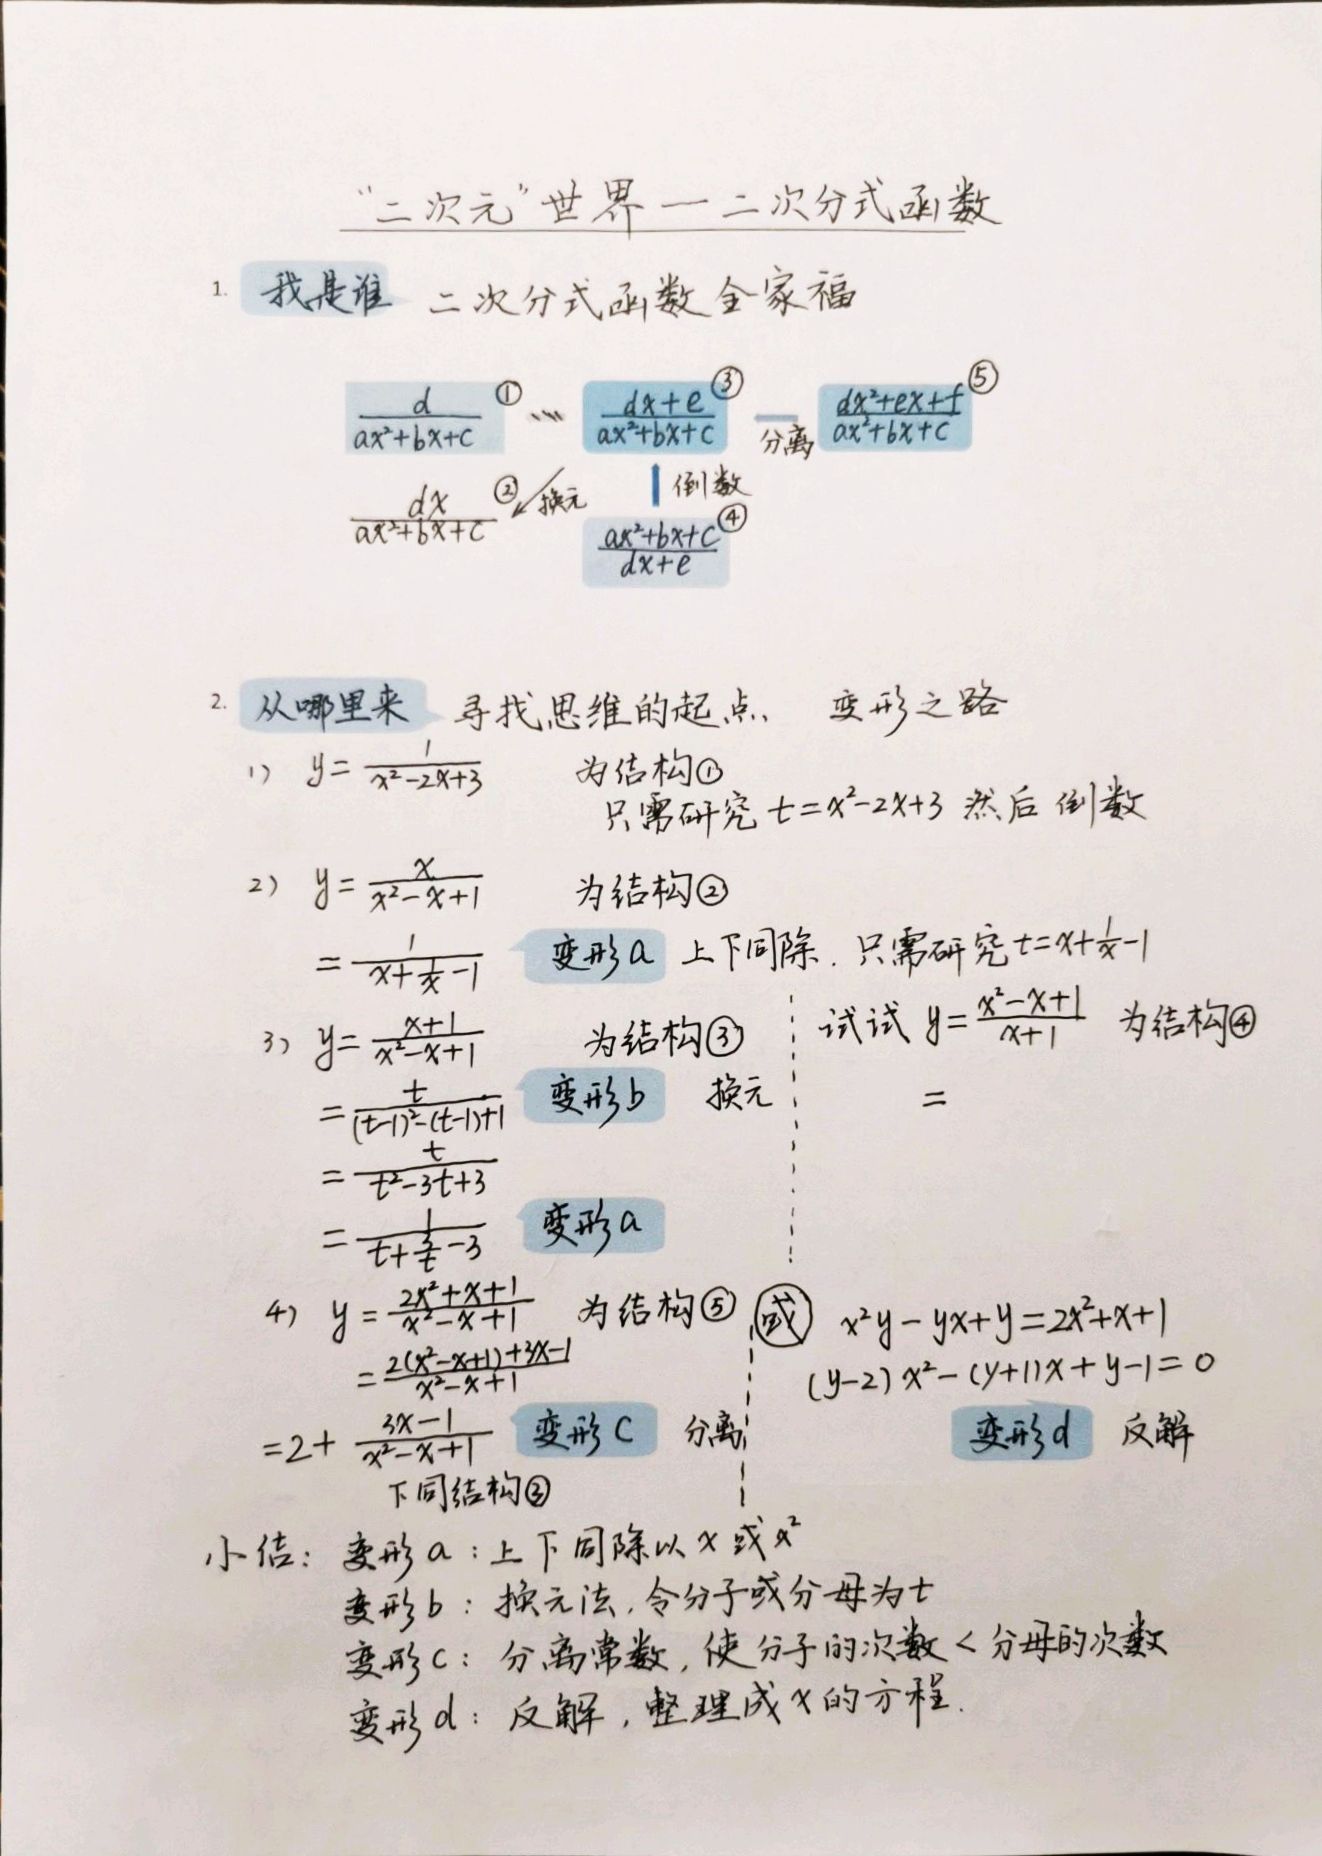 "二次元"世界一二次分式函数
1. 我是谁 二次分式函数全家福
d/(ax²+bx+c) ① (dx+e)/(ax²+bx+c) ③ 分离 (dx²+ex+f)/(ax²+bx+c) ⑤
dx/(ax²+bx+c) ② 换元 倒数
(ax²+bx+c)/(dx+e) ④
2. 从哪里来 寻找思维的起点、 变形之路
1) y=1/(x²-2x+3) 为结构①
只需研究 t=x²-2x+3 然后倒数
2) y=x/(x²-x+1) 为结构②
=1/(x+1/x-1) 变形a 上下同除. 只需研究t=x+1/x-1
3) y=(x+1)/(x²-x+1) 为结构③ 试试 y=(x²-x+1)/(x+1) 为结构④
=t/((t-1)²-(t-1)+1) 变形b 换元 =
=t/(t²-3t+3)
=1/(t+3/t-3) 变形a
4) y=(2x²+x+1)/(x²-x+1) 为结构⑤ 或 x²y-yx+y=2x²+x+1
=(2(x²-x+1)+3x-1)/(x²-x+1) (y-2)x²-(y+1)x+y-1=0
=2+(3x-1)/(x²-x+1) 变形c 分离 变形d 反解
下同结构③
小结: 变形a:上下同除以x或x²
变形b: 换元法,令分子或分母为t
变形c: 分离常数,使分子的次数<分母的次数
变形d: 反解,整理成x的方程.